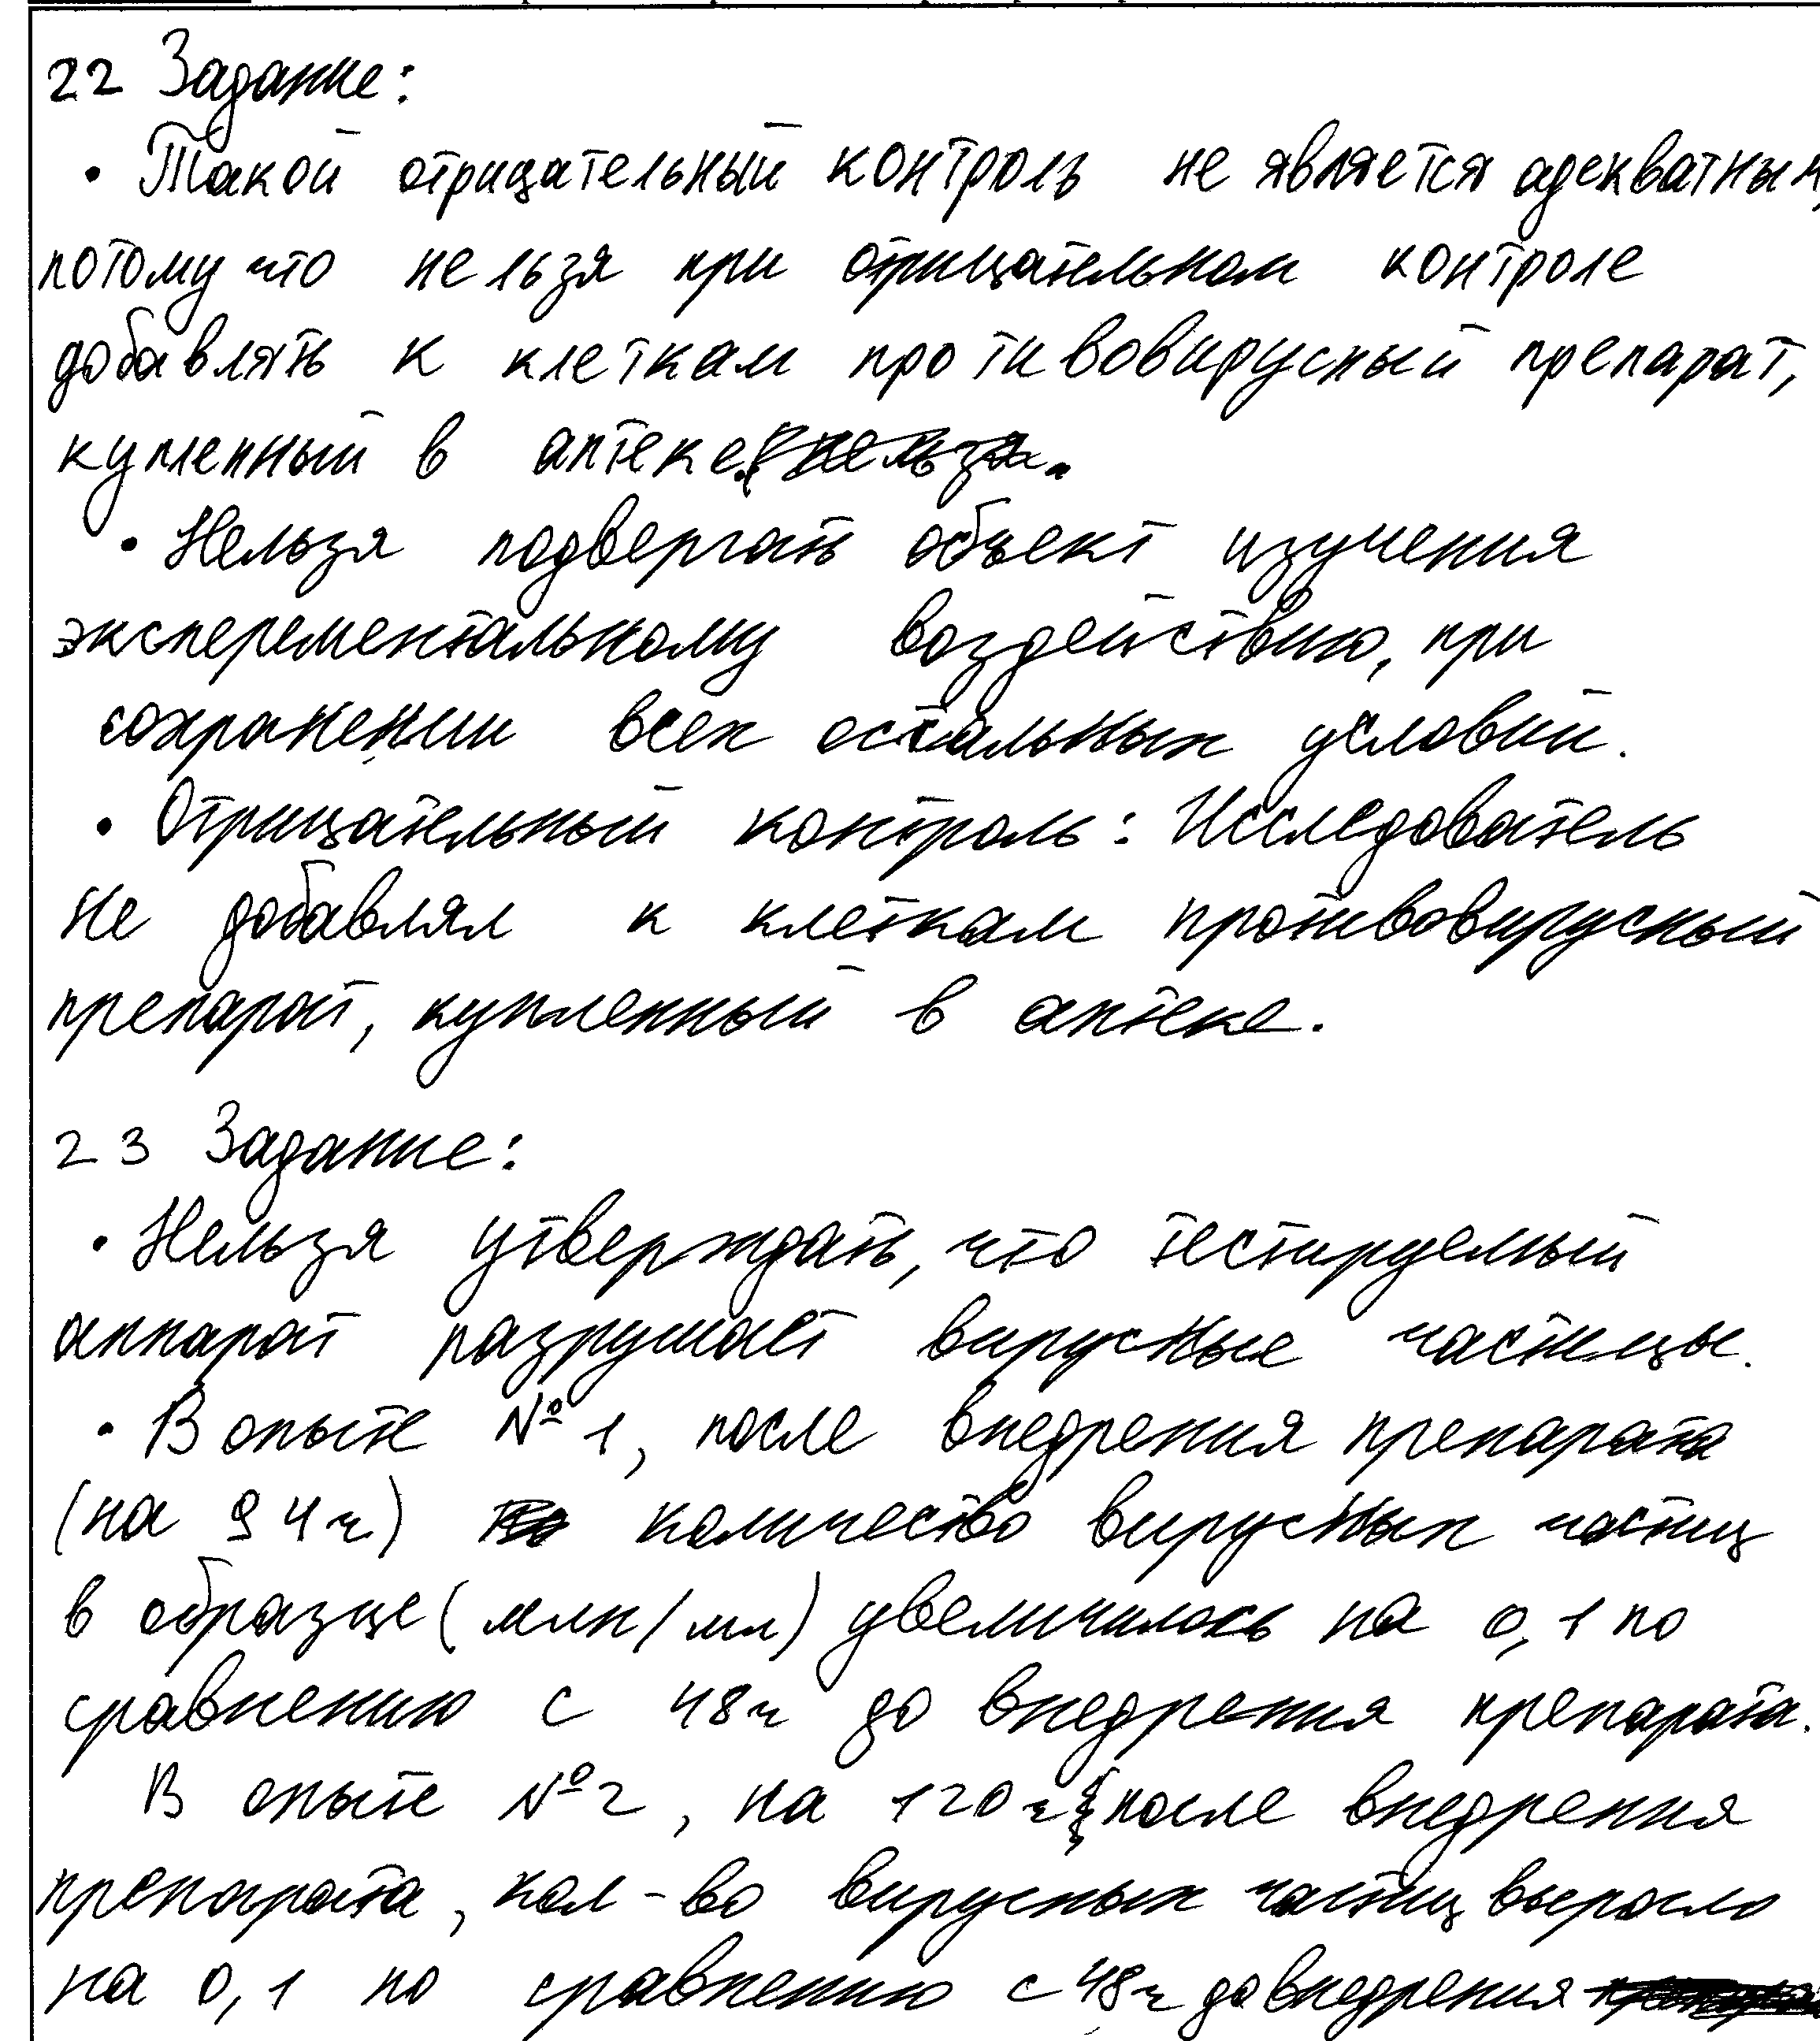 22 Задание:
• Такой отрицательный контроль не является адекватным,
потому что нельзя при отрицательном контроле
добавлять к клеткам противовирусный препарат,
купленный в аптеке.
• Нельзя подвергать объект изучения
эксперементальному воздействию, при
сохранении всех остальных условий.
• Отрицательный контроль: Исследователь
не добавлял к клеткам противовирусный
препарат, купленный в аптеке.
23 Задание:
• Нельзя утверждать, что тестируемый
аппарат разрушает вирусные частицы.
• В опыте №1, после внедрения препарата
(на 94ч) количество вирусных частиц
в образце (млн/мл) увеличилось на 0,1 по
сравнению с 48ч до внедрения препарата.
В опыте №2, на 120ч после внедрения
препарата, кол-во вирусных частиц выросло
на 0,1 по сравнению с 48ч до внедрения